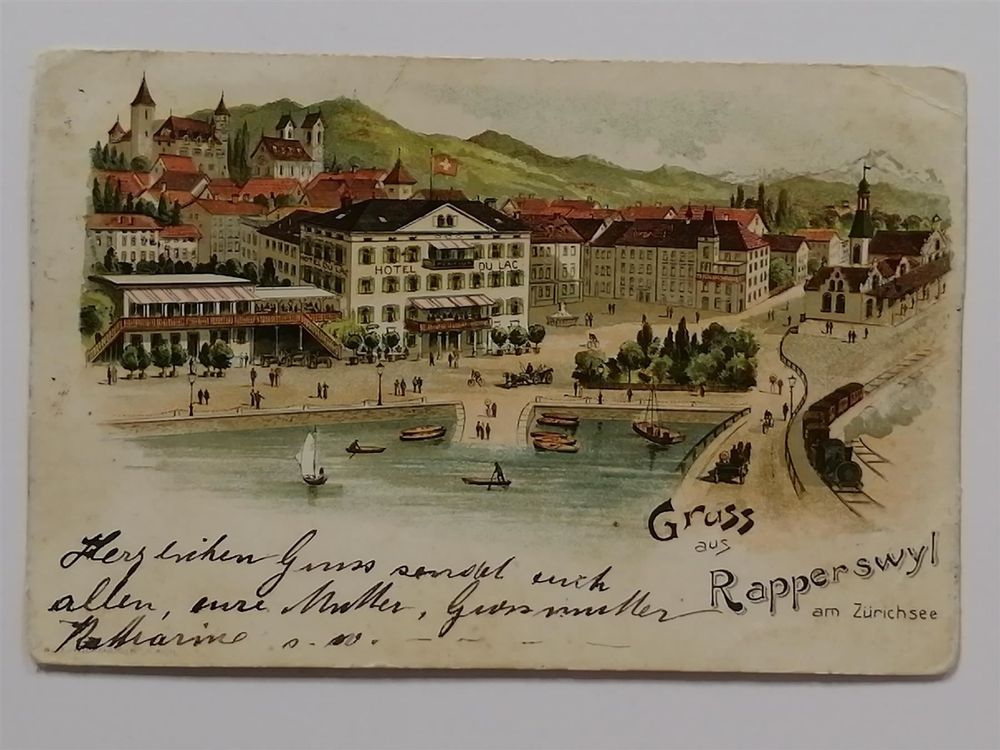 HOTEL DU LAC
HOTEL DU LAC
Gruss
aus
Rapperswyl
am Zürichsee
Herzlichen Gruss sendet euch
allen, eure Mutter, Grossmutter
Katharine s. w.